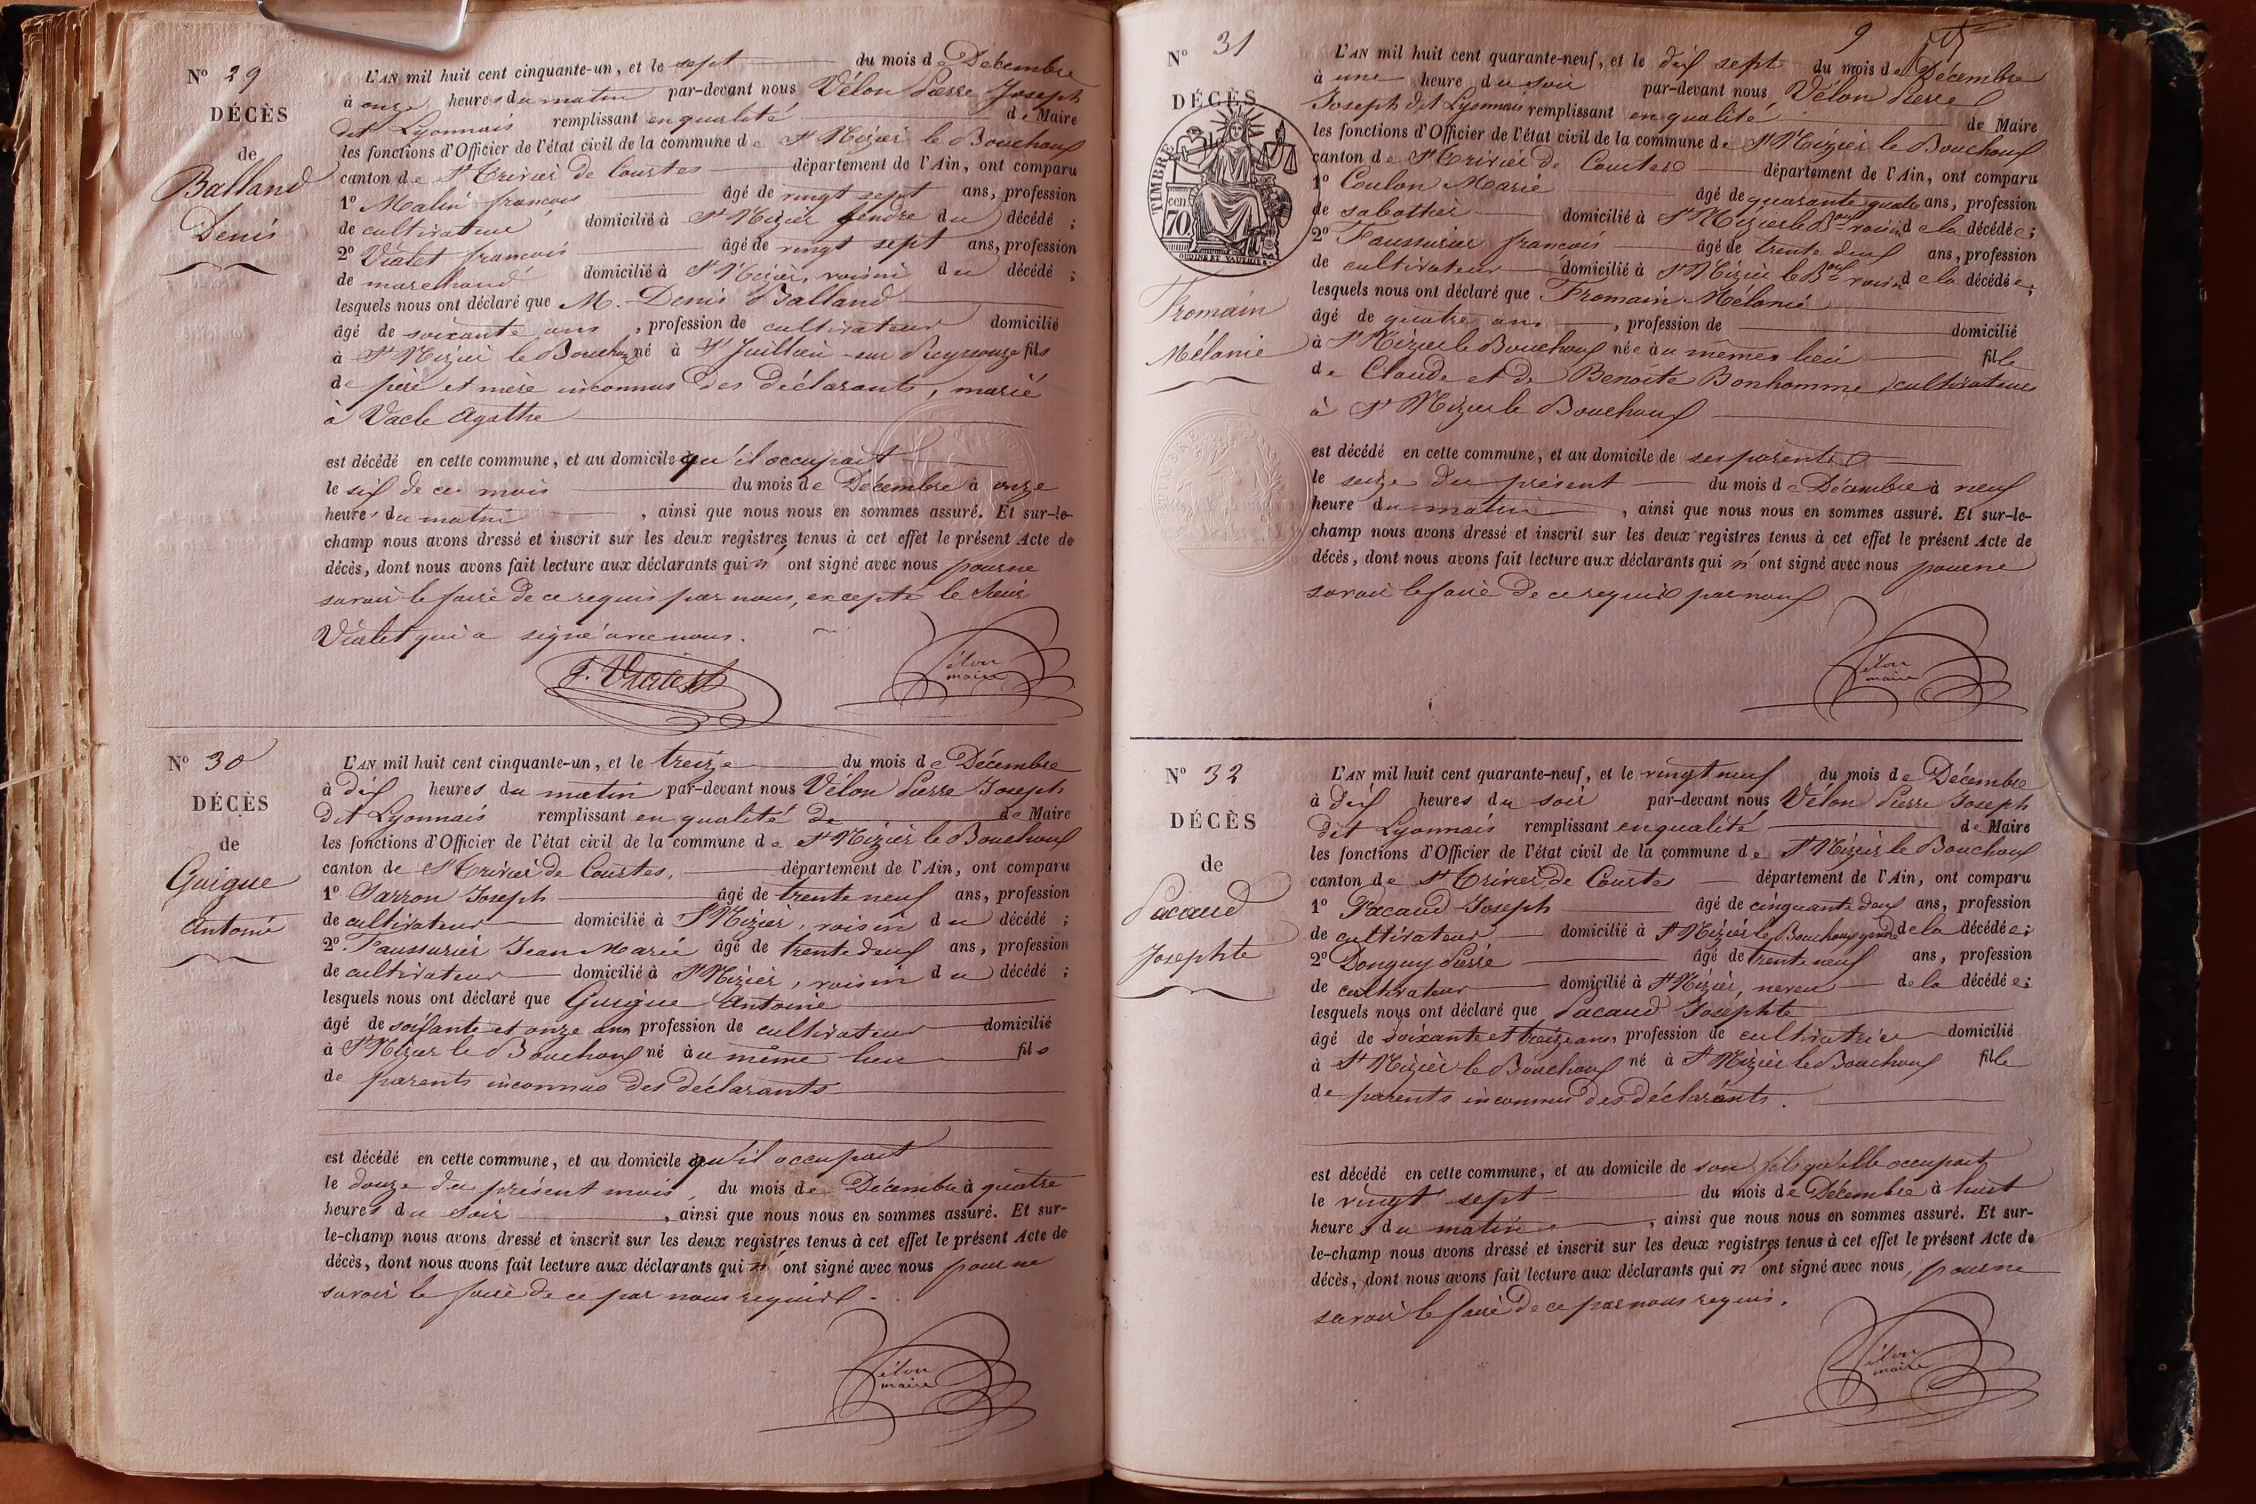 N° 29
DÉCÈS
de
Balland
Denis
L'AN mil huit cent cinquante-un, et le sept du mois de Décembre
à onze heures du matin par-devant nous Vélon Pierre Joseph
dit Lyonnais remplissant en qualité de Maire
les fonctions d'Officier de l'état civil de la commune de St Nizier le Bouchoux
canton de St Trivier de Courtes département de l'Ain, ont comparu
1° Malin françois âgé de vingt sept ans, profession
de cultivateur domicilié à St Nizier gendre du décédé ;
2° Vialet françois âgé de vingt sept ans, profession
de marechand domicilié à St Nizier, voisin du décédé ;
lesquels nous ont déclaré que M. Denis Balland
âgé de soixante ans, profession de cultivateur domicilié
à St Nizier le Bouchoux né à St Juillien sur Reyssouze fils
de père et mère inconnus des déclarants, marié
à Vacle Agathe
est décédé en cette commune, et au domicile qu'il occupait
le six de ce mois du mois de Décembre à onze
heures du matin, ainsi que nous nous en sommes assuré. Et sur-le-
champ nous avons dressé et inscrit sur les deux registres tenus à cet effet le présent Acte de
décès, dont nous avons fait lecture aux déclarants qui n'ont signé avec nous pour ne
savoir le faire de ce requis par nous, excepté le sieur
Vialet qui a signé avec nous.
F. Vialet
Vélon
maire
N° 30
DÉCÈS
de
Guigue
Antoine
L'AN mil huit cent cinquante-un, et le treize du mois de Décembre
à dix heures du matin par-devant nous Vélon Pierre Joseph
dit Lyonnais remplissant en qualité de de Maire
les fonctions d'Officier de l'état civil de la commune de St Nizier le Bouchoux
canton de St Trivier de Courtes, département de l'Ain, ont comparu
1° Sarron Joseph âgé de trente neuf ans, profession
de cultivateur domicilié à St Nizier, voisin du décédé ;
2° Faussurier Jean Marie âgé de trente deux ans, profession
de cultivateur domicilié à St Nizier, voisin du décédé ;
lesquels nous ont déclaré que Guigue Antoine
âgé de soixante et onze ans profession de cultivateur domicilié
à St Nizier le Bouchoux né àu même lieu fils
de parents inconnus des déclarants
est décédé en cette commune, et au domicile qu'il occupait
le douze du présent mois, du mois de Décembre à quatre
heures du soir, ainsi que nous nous en sommes assuré. Et sur-
le-champ nous avons dressé et inscrit sur les deux registres tenus à cet effet le présent Acte de
décès, dont nous avons fait lecture aux déclarants qui n'ont signé avec nous pour ne
savoir le faire de ce par nous requis.
Vélon
maire
9
N° 31
DÉCÈS
TIMBRE
cen.
70
Fromain
Mélanie
L'AN mil huit cent quarante-neuf, et le dix sept du mois de Décembre
à une heure du soir par-devant nous Vélon Pierre
Joseph dit Lyonnais remplissant en qualité de Maire
les fonctions d'Officier de l'état civil de la commune de St Nizier le Bouchoux
canton de St Trivier de Courtes département de l'Ain, ont comparu
1° Coulon Marie âgé de quarante quatre ans, profession
de sabottier domicilié à St Nizier le Boux voisin de la décédée ;
2° Faussurier françois âgé de trente deux ans, profession
de cultivateur domicilié à St Nizier le Boux voisin de la décédée ;
lesquels nous ont déclaré que Fromain Mélanie
âgé de quatre ans, profession de domicilié
à St Nizier le Bouchoux née àu même lieu fille
de Claude et de Benoîte Bonhomme, cultivateurs
à St Nizier le Bouchoux
est décédé en cette commune, et au domicile de ses parents
le seize du présent du mois de Décembre à neuf
heure du matin, ainsi que nous nous en sommes assuré. Et sur-le-
champ nous avons dressé et inscrit sur les deux registres tenus à cet effet le présent Acte de
décès, dont nous avons fait lecture aux déclarants qui n'ont signé avec nous pour ne
savoir le faire de ce requis par nous
Vélon
maire
N° 32
DÉCÈS
de
Pacaud
Josephte
L'AN mil huit cent quarante-neuf, et le vingt neuf du mois de Décembre
à dix heures du soir par-devant nous Vélon Pierre Joseph
dit Lyonnais remplissant en qualité de Maire
les fonctions d'Officier de l'état civil de la commune de St Nizier le Bouchoux
canton de St Trivier de Courtes département de l'Ain, ont comparu
1° Pacaud Joseph âgé de cinquante deux ans, profession
de cultivateur domicilié à St Nizier le Bouchoux gendre de la décédée ;
2° Donguy Pierre âgé de trente neuf ans, profession
de cultivateur domicilié à St Nizier, neveu de la décédée ;
lesquels nous ont déclaré que Pacaud Josephte
âgé de soixante et treize ans, profession de cultivatrice domicilié
à St Nizier le Bouchoux né à St Nizier le Bouchoux fille
de parents inconnus des déclarants.
est décédé en cette commune, et au domicile de son fils qu'elle occupait
le vingt sept du mois de Décembre à huit
heures du matin, ainsi que nous nous en sommes assuré. Et sur-
le-champ nous avons dressé et inscrit sur les deux registres tenus à cet effet le présent Acte de
décès, dont nous avons fait lecture aux déclarants qui n'ont signé avec nous, pour ne
savoir le faire de ce par nous requis.
Vélon
maire